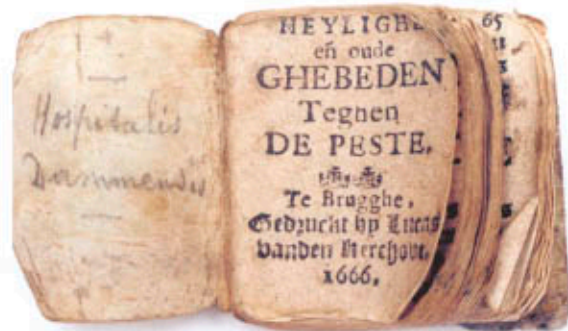 Hospitalis
Dammensis
HEYLIGHE
eñ oude
GHEBEDEN
Teghen
DE PESTE.
Te Brugghe,
Gedruckt by Lucas
vanden Kerchove,
1666.
65